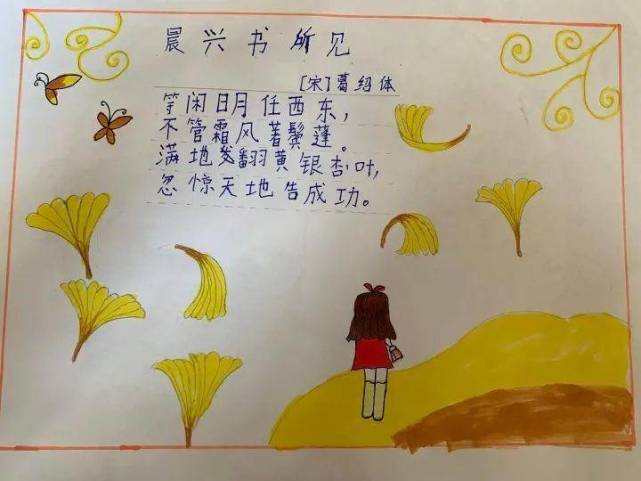 晨兴书所见
[宋]葛绍体
等闲日月任西东,
不管霜风著鬓蓬。
满地翻黄银杏叶,
忽惊天地告成功。